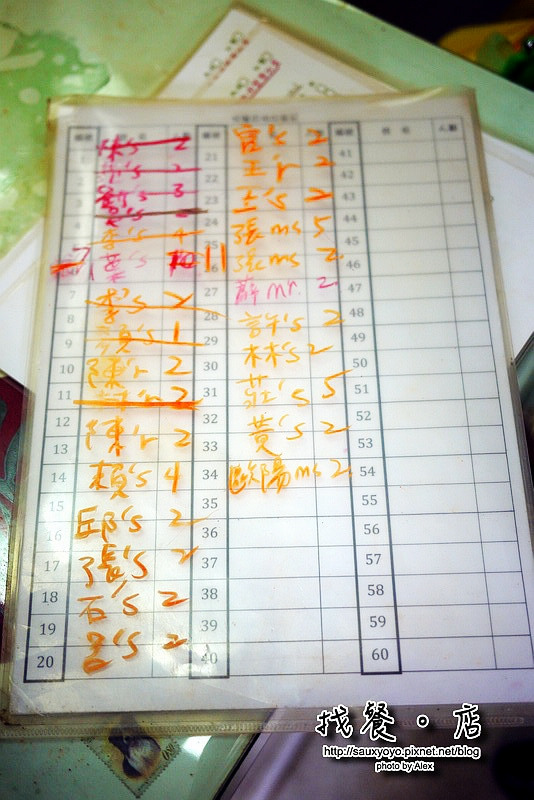 編號 姓名 人數 編號 姓名 人數 編號 姓名 人數
林's 2 21 宮's 2 41
2 22 王'r 2 42
3 劉's 3 23 王's 2 43
4 24 張ms 5 44
李's 4 25 張ms 2 45
葉's 10 11 薛mr. 2 46
7 李's 2 27 47
8 28 許's 2 48
9 's 1 29 林's 2 49
10 陳'r 2 30 莊's 5 50
11 2 31 黃's 2 51
12 陳'r 2 32 歐陽ms 2 52
13 33 53
14 賴's 4 34 54
邱's 2 35 55
16 36 56
17 張's 2 37 57
18 石's 2 38 58
19 呂's 2 39 59
20 40 60
找餐。店
http://sauxyoyo.pixnet.net/blog
photo by Alex